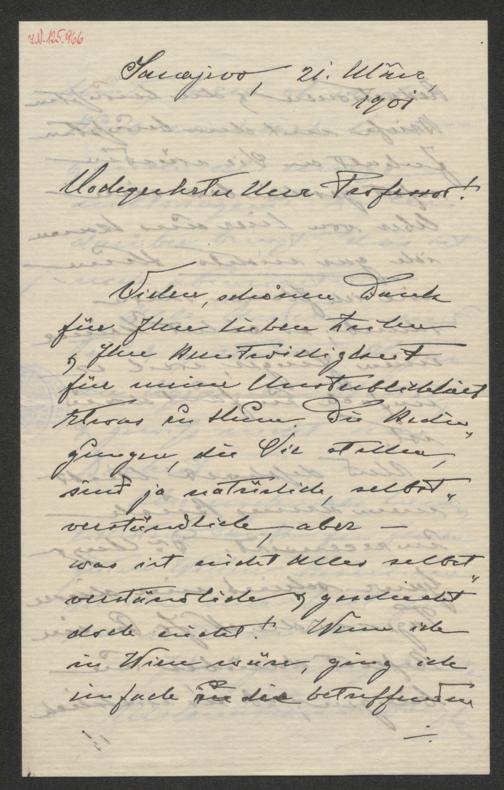 I.N. 125.966
Sarajevo, 21. März
1901
Hochgeehrter Herr Professor!
Vielen, schönen Dank
für Ihre lieben Zeilen
& Ihre Bereitwilligkeit
für meine Unsterblichkeit
Etwas zu thun. Die Bedin"
gungen, die Sie stellen,
sind ja natürlich, selbst"
verständlich, aber —
was ist nicht Alles selbst"
verständlich & geschieht
doch nicht! Wenn ich
in Wien wäre, ging ich
einfach in die betreffenden